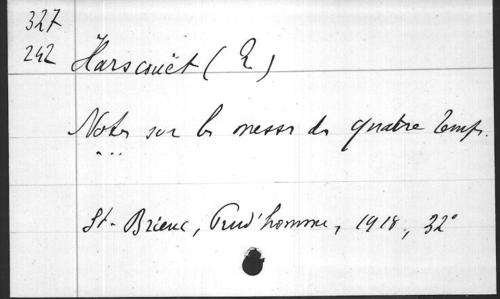 327
242
Harscouët (R)
Notes sur les messes des quatre temps.
...
St-Brieuc, Prud'homme, 1918, 32°